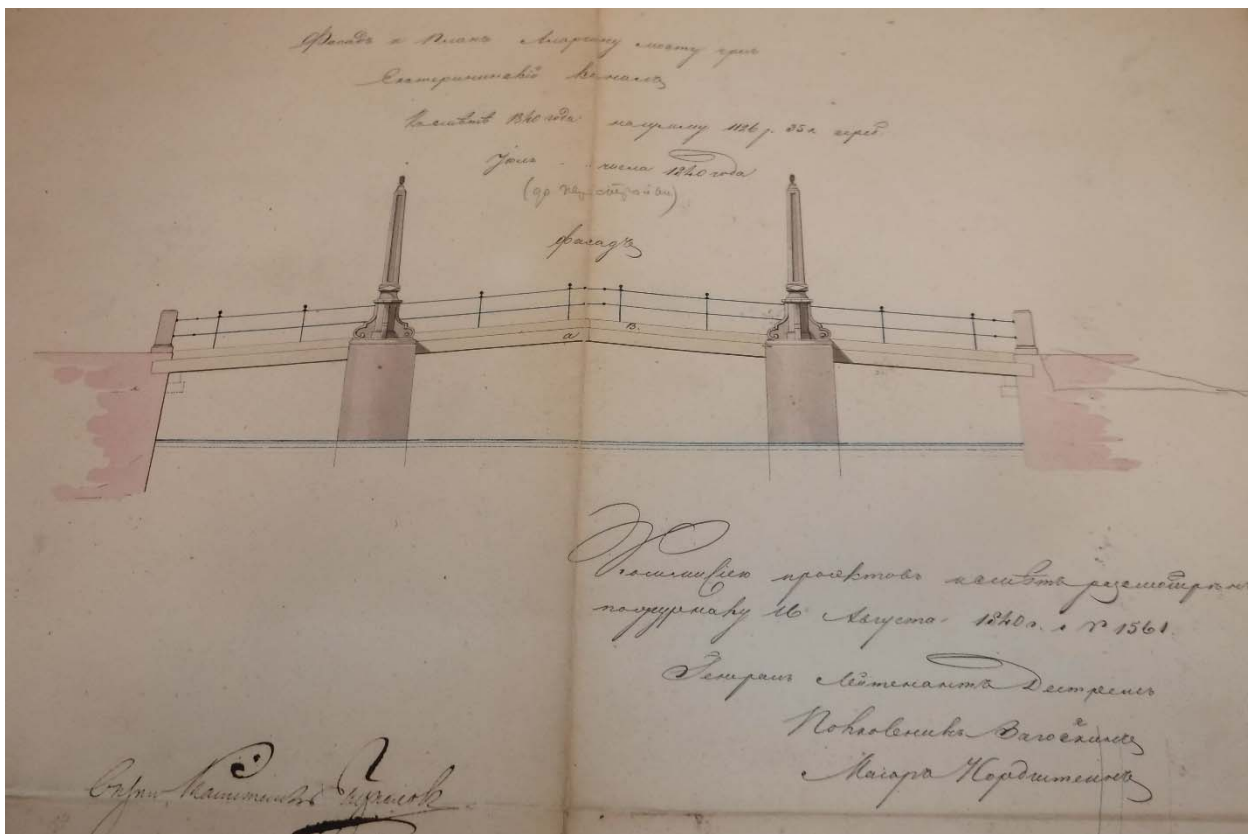 Фасадъ и Планъ Аларчину мосту чрезъ
Екатерининскій каналъ
1840 года на сумму 1126 р. 35 к. сереб
Іюль числа 1840 года.
(до перестройки)
фасадъ
a
B.
Коммисіею проектовъ разсмотрѣна
по журналу 16 Августа 1840 г. № 1561.
Генералъ Лейтенантъ Дестремъ
Полковникъ Загоскинъ
Маіоръ Нордштейнъ
Капитанъ